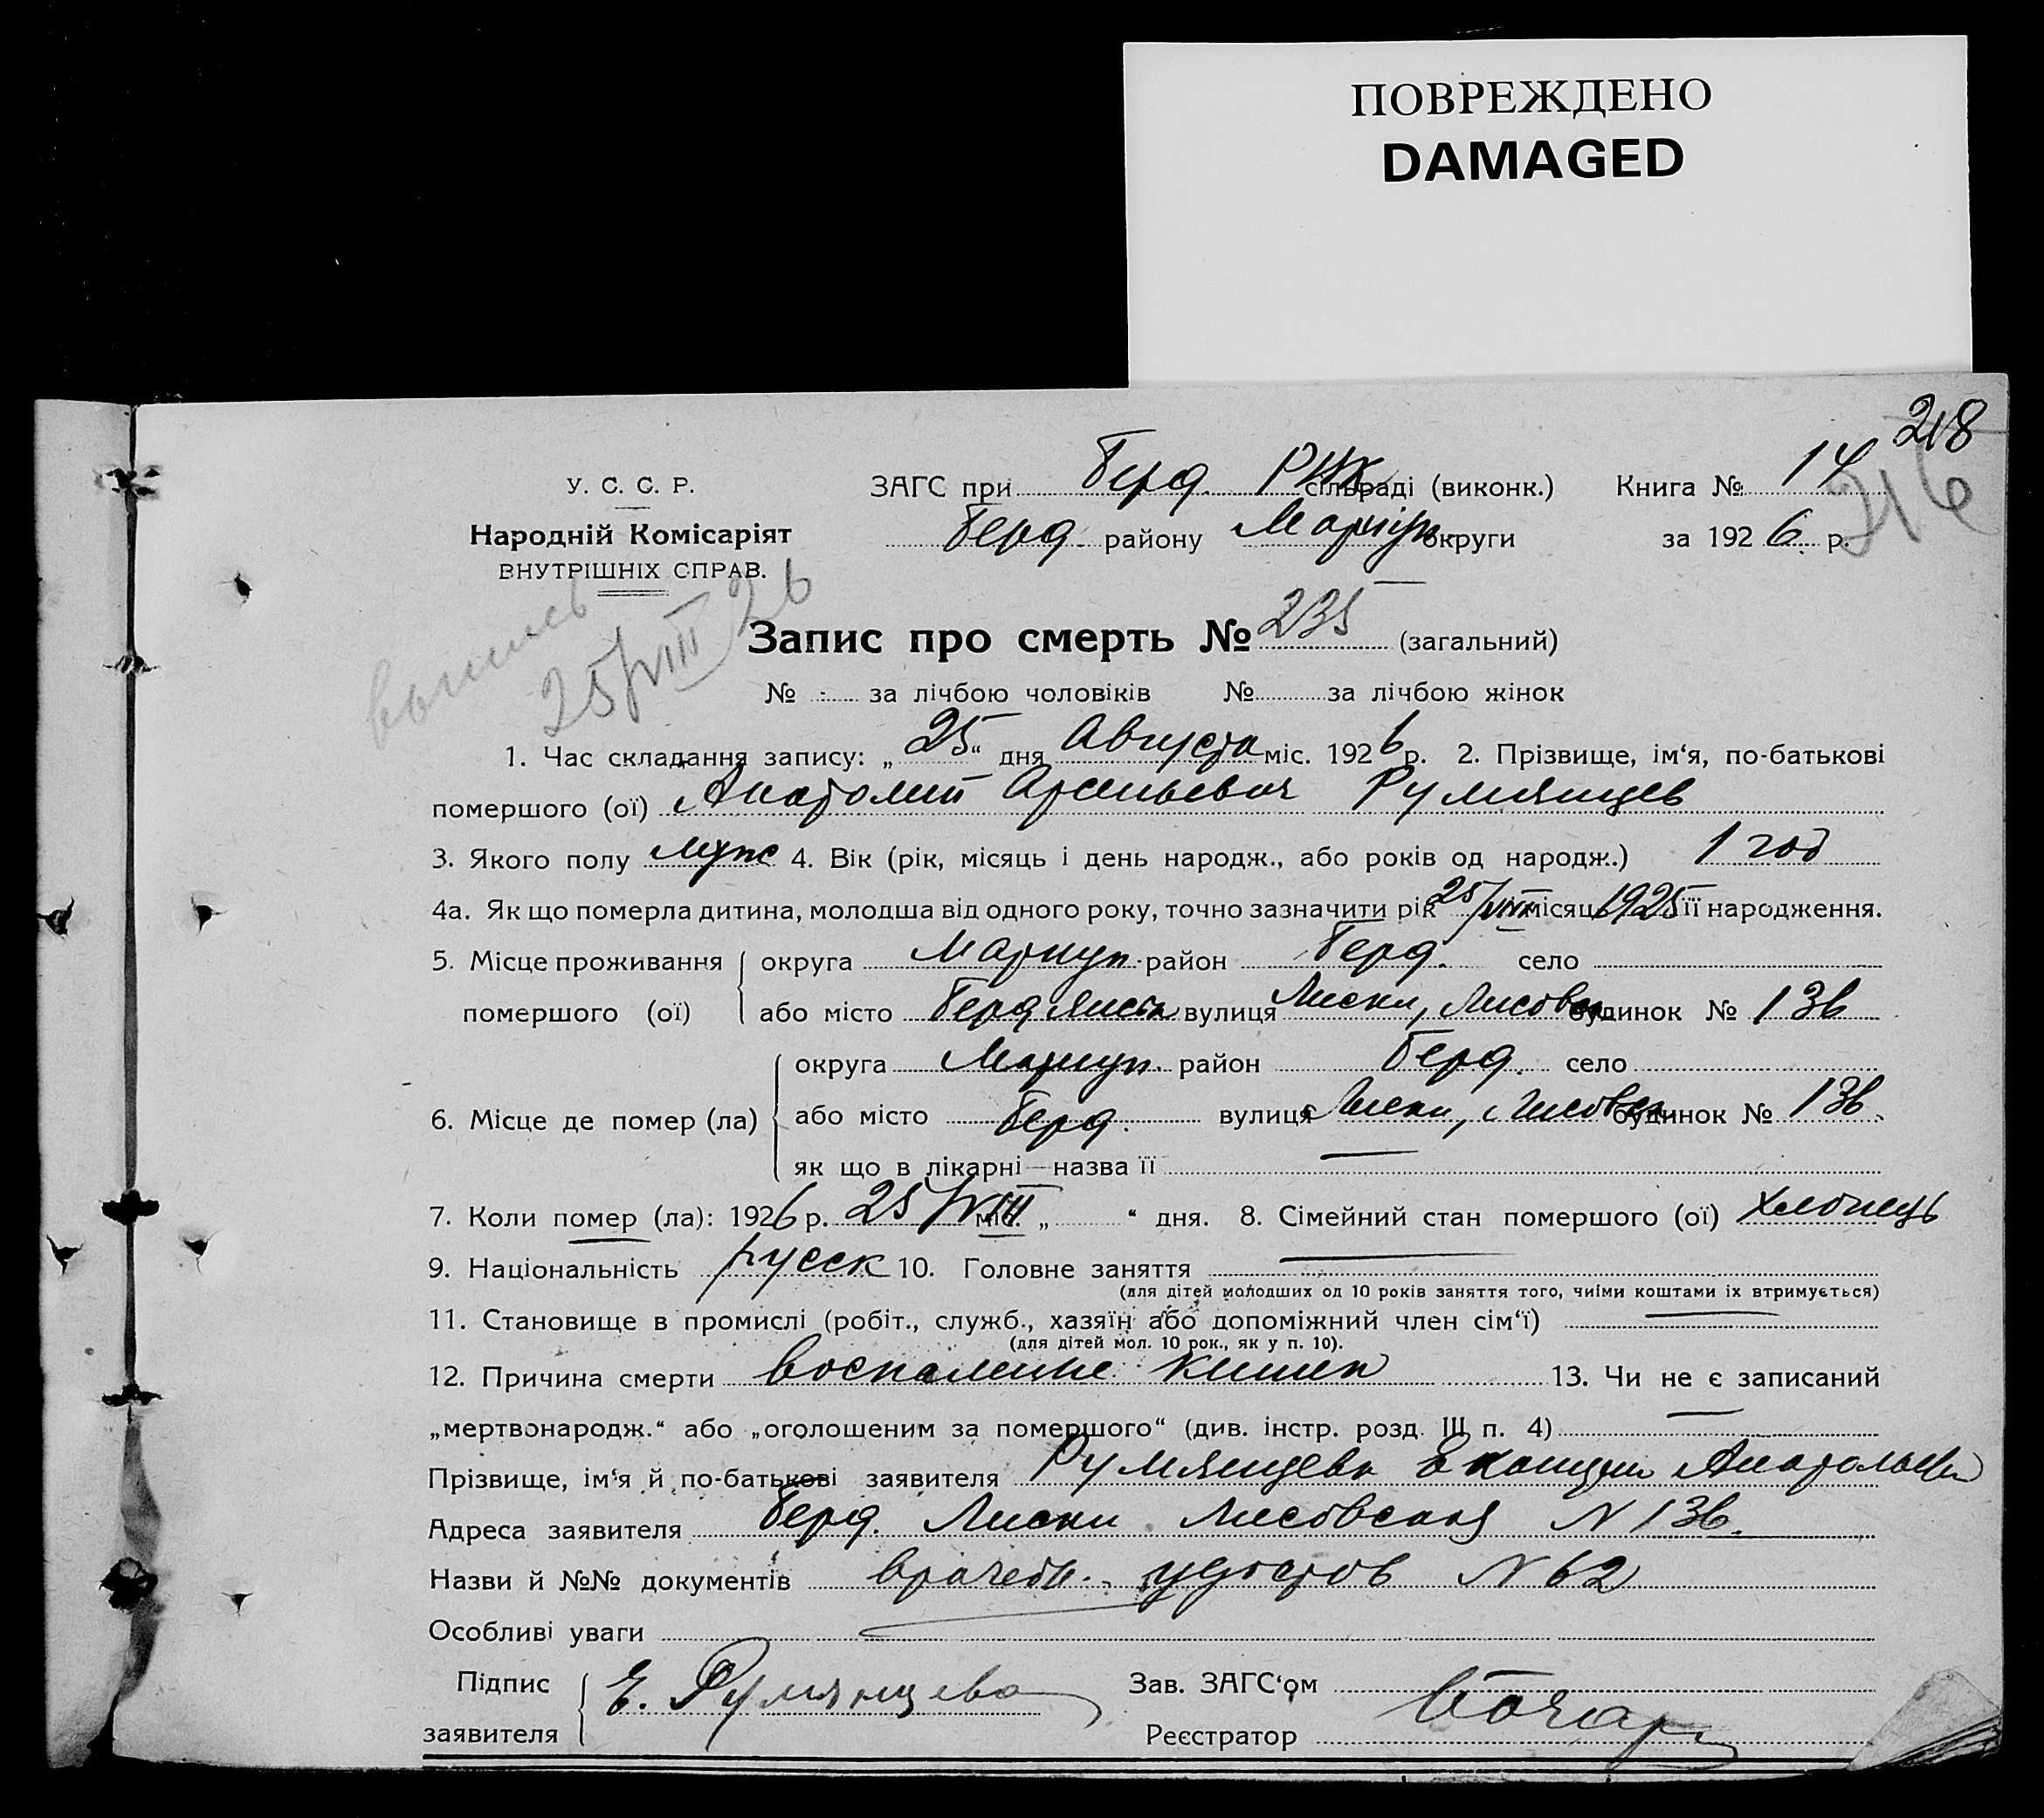 ПОВРЕЖДЕНО
DAMAGED
218
216
У. С. С. Р.
Народній Комісаріят
ВНУТРІШНІХ СПРАВ.
ЗАГС при Берд. РИК сільраді (виконк.) Книга № 14
Берд. району Маріуп. округи за 1926 р.
выпись
25/VIII 26
Запис про смерть № 235 (загальний)
№ за лічбою чоловіків № за лічбою жінок
1. Час складання запису: „25“ дня Августа міс. 1926 р. 2. Прізвище, ім‘я, по-батькові
помершого (ої) Анатолий Арсеньевич Румянцев
3. Якого полу муж 4. Вік (рік, місяць і день народж., або років од народж.) 1 год
4а. Як що померла дитина, молодша від одного року, точно зазначити рік 25/VIII місяць 1925 її народження.
5. Місце проживання округа Мариуп. район Берд. село
помершого (ої) або місто Бердянськ вулиця Лиски, Лисовск будинок № 136
округа Мариуп. район Берд. село
6. Місце де помер (ла) або місто Берд. вулиця Лиски, Лисовск будинок № 136
як що в лікарні—назва її —
7. Коли помер (ла): 1926 р. 25/VIII міс. „ “ дня. 8. Сімейний стан помершого (ої) хлопець
9. Національність русск 10. Головне заняття —
(для дітей молодших од 10 років заняття того, чиїми коштами їх втримується)
11. Становище в промислі (робіт., служб., хазяїн або допоміжний член сім‘ї) —
(для дітей мол. 10 рок., як у п. 10).
12. Причина смерти воспаление кишек 13. Чи не є записаний
„мертвонародж.“ або „оголошеним за помершого“ (див. інстр. розд. III п. 4) —
Прізвище, ім‘я й по-батькові заявителя Румянцева Анатольевн
Адреса заявителя Берд. Лиски Лисовская N 136.
Назви й №№ документів врачебн. удостов N 62
Особливі уваги —
Підпис Е. Румянцева Зав. ЗАГС‘ом
заявителя Реєстратор